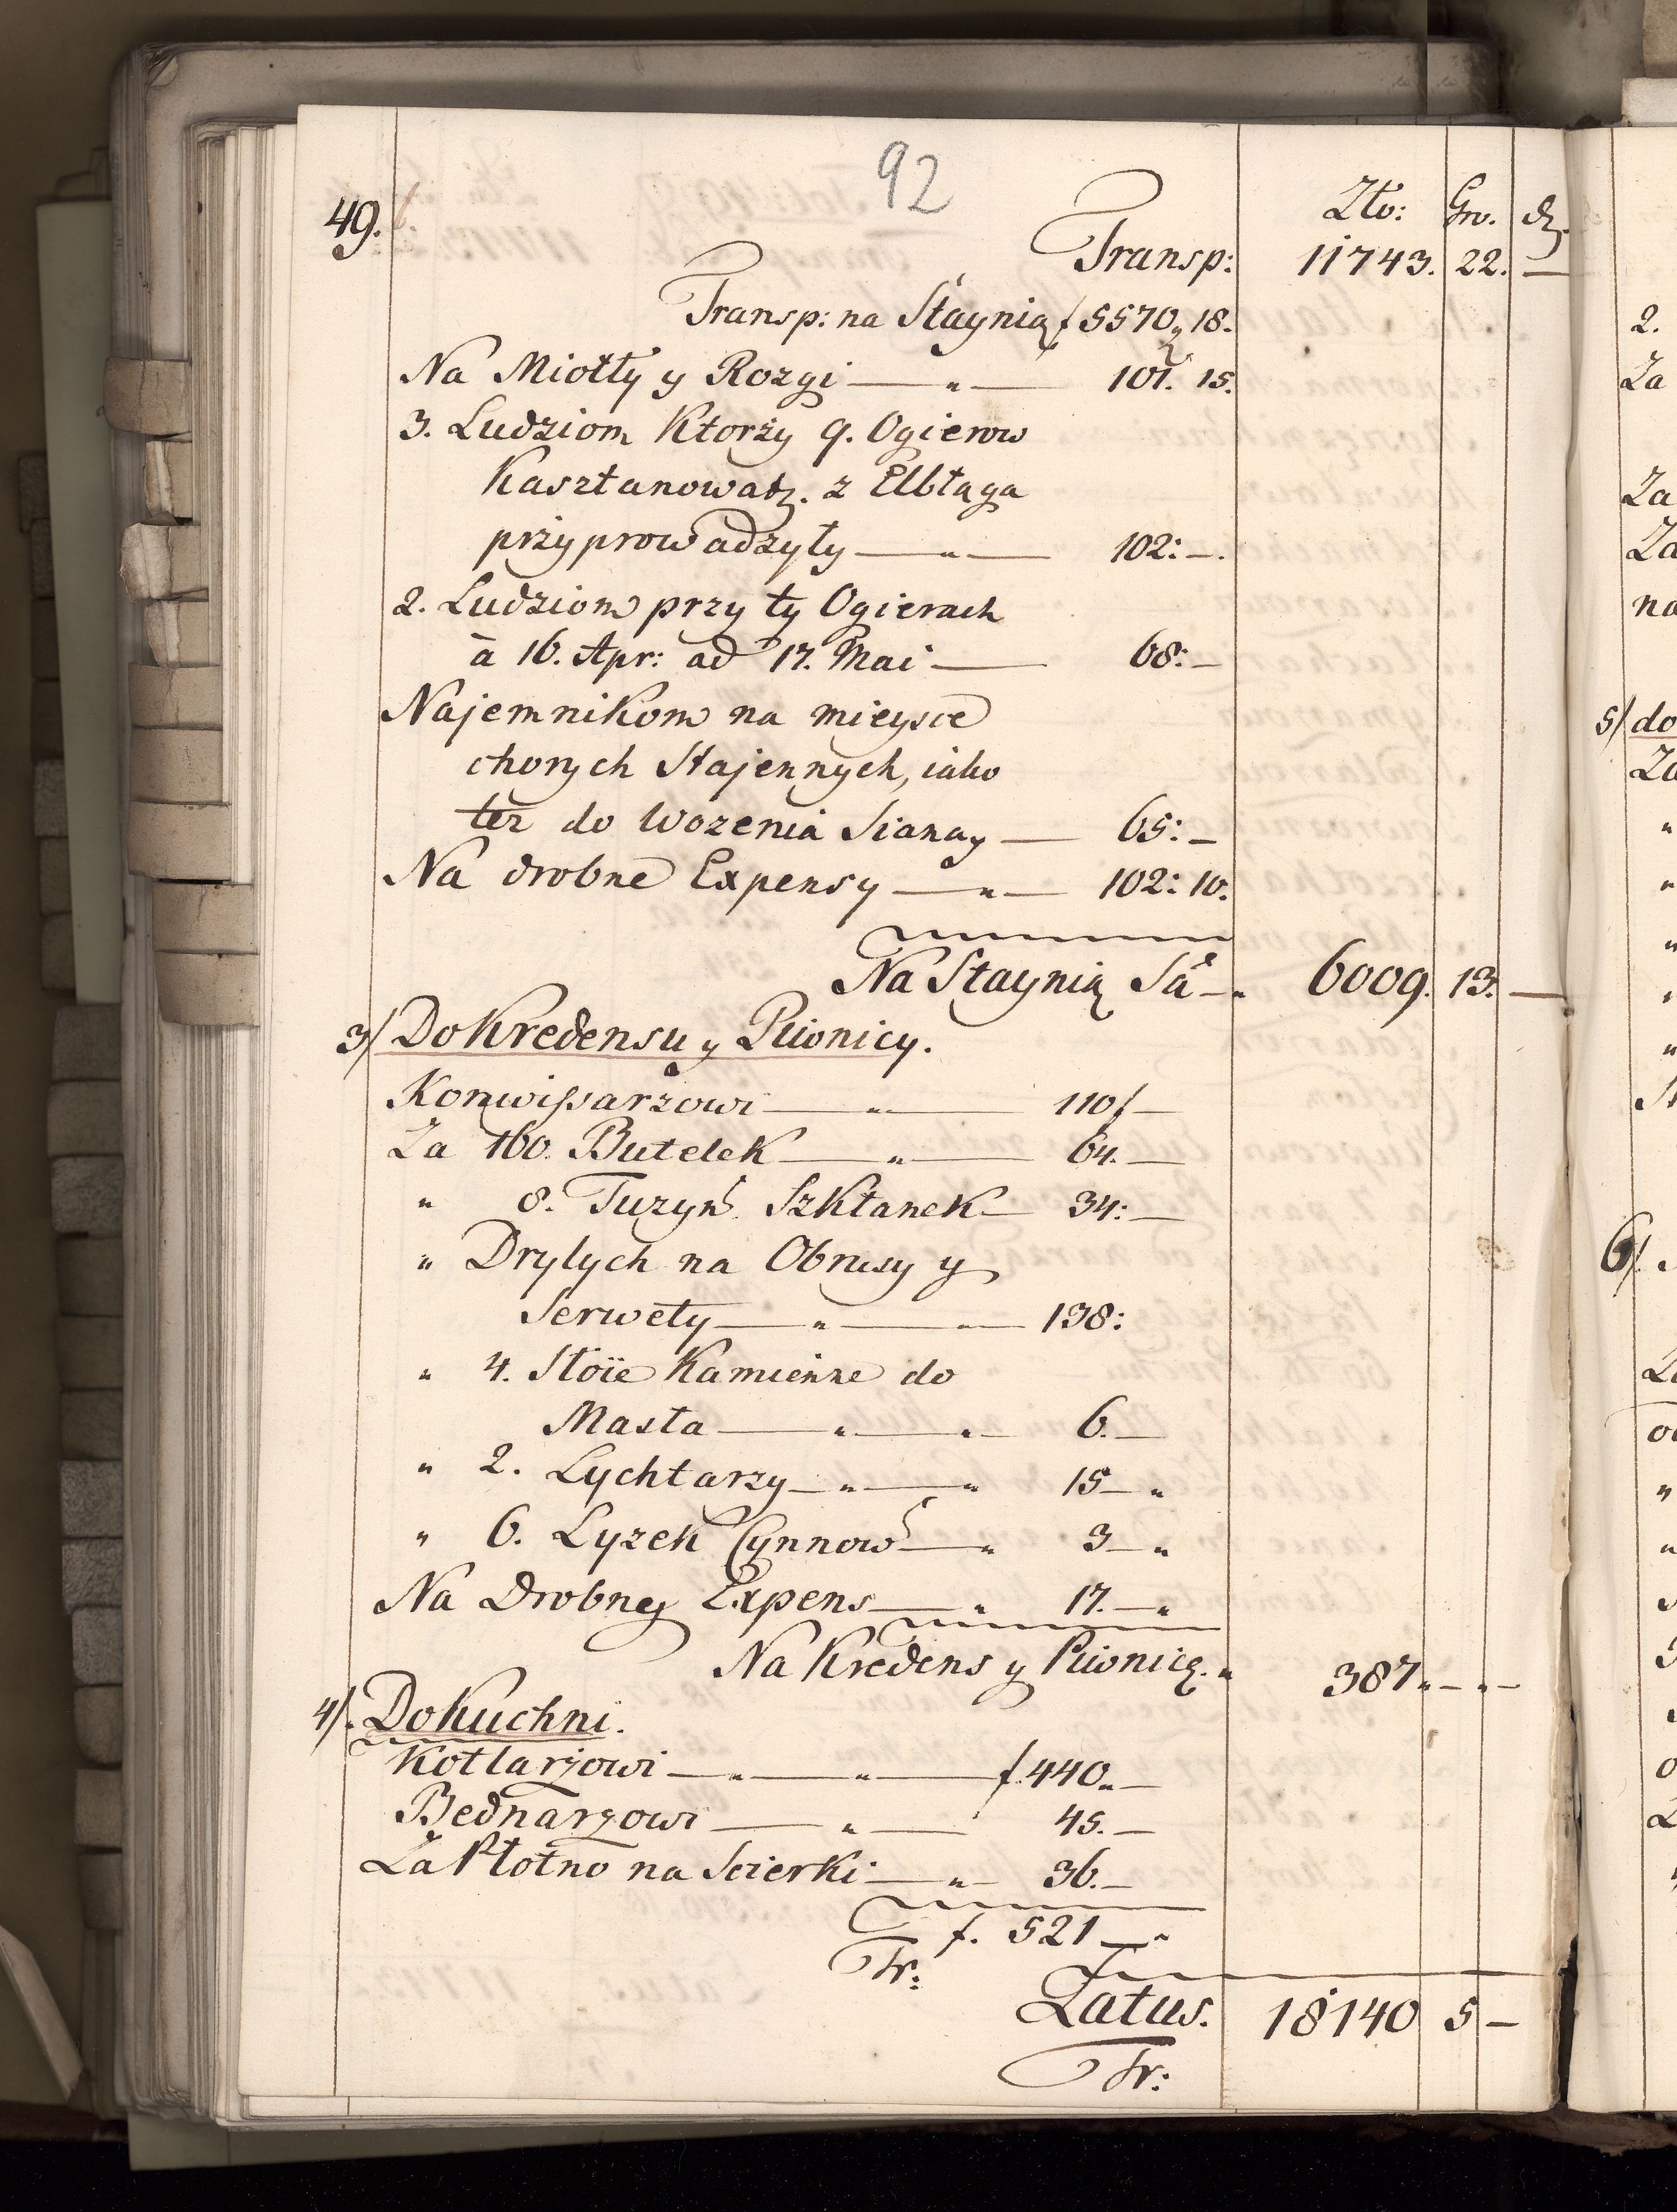 92
49.
Zło: Gro. dz.
Transp: 11743. 22. —
Transp: na Staynią f 5570,, 18.
Na Miotły y Rozgi — „ — 101. 15.
3. Ludziom Ktorzy 9. Ogierow
Kasztanowatz. z Elbląga
przyprowadzyły — „ — 102: —.
2. Ludziom przy ty Ogierach
à 16. Apr: ad 17. Mai — 68: —
Najemnikom na mieysce
chorych Stajennych, iako
tez do Wozenia Siana — 65: —
Na drobne Expensy — „ — 102: 10.
Na Staynią Sa — „ 6009. 13. —
3/ Do Kredensu y Piwnicy.
Konwissarzowi — „ — 110 f —
Za 160. Butelek — „ — 64. —
„ 8. Tuzyn Szklanek — 34: —
„ Drylych na Obrusy y
Serwety — „ — „ — 138:
„ 4. Stoie Kamienne do
Masła — „ — „ — 6. —
„ 2. Lychtarzy — „ — „ 15 — „
„ 6. Lyzek Cynnow — „ 3 — „
Na Drobney Expens — „ 17. — „
Na Kredens y Piwnicą. „ 387 „ — „ —
4/. Do Kuchni.
Kotlarzowi — „ — „ — f. 440 „ —
Bednarzowi — „ — 45. —
Za Płotno na Scierki — „ — 36. —
f. 521 — „
Tr:
Latus. 18140 5 —
Tr:
2.
Za
Za
Za
na
5/ do
Za
„
„
„
„
„
6/.
„
„